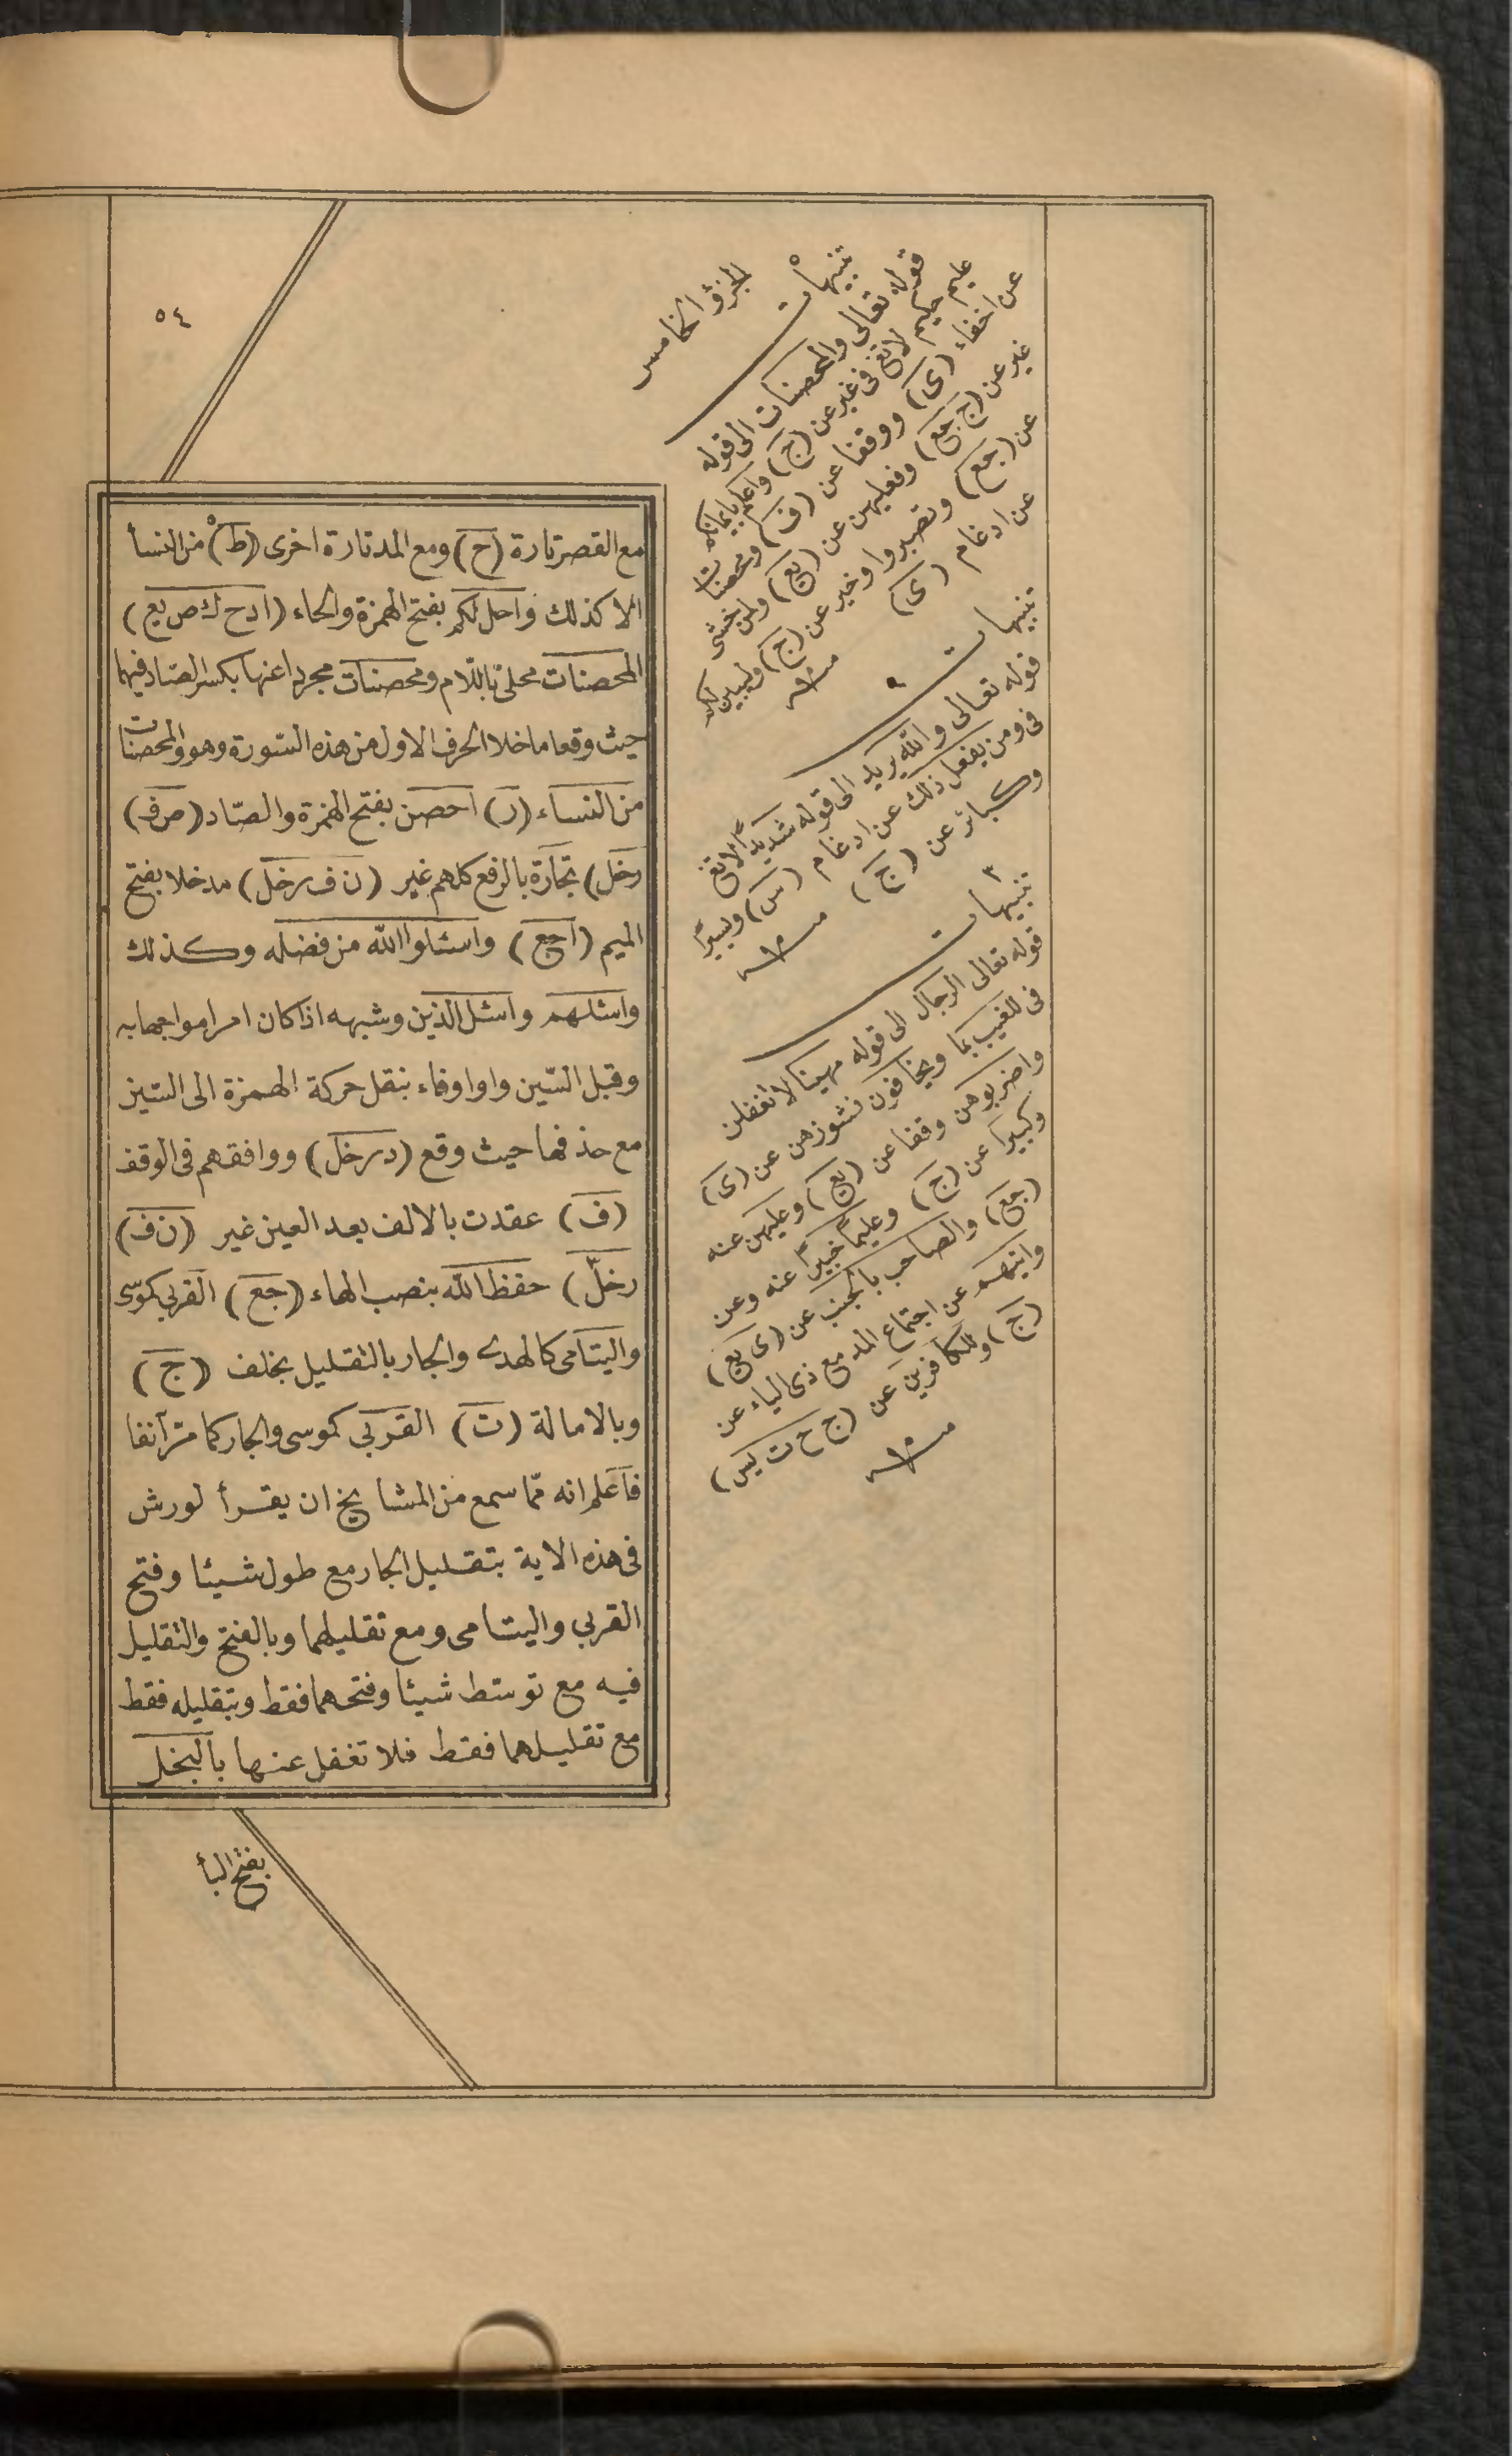 ٥٤
الجزؤ الخامس
مع القصر تارة (ح) ومع المد تارة اخرى (ط) من النسأ
الا كذلك واحل لكم بفتح الهمزة والحاء (ادح ك ص يع)
المحصنات محلى باللام ومحصنات مجردا عنها بكسر الصاد فيهما
حيث وقعا ما خلا الحرف الاول من هذه السورة وهو والمحصنات
من النساء (ر) احصن بفتح الهمزة والصاد (ص ف
رخل) تجارة بالرفع كلهم غير (ن ف رخل) مدخلا بفتح
الميم (اجع) واسئلوا الله من فضله وكذلك
واسئلهم واسئل الذين وشبهه اذا كان امرا مواجها به
وقبل السين واو او فاء بنقل حركة الهمزة الى السين
مع حذفها حيث وقع (د رخل) ووافقهم فى الوقف
(ف) عقدت بالالف بعد العين غير (ن ف
رخل) حفظ الله بنصب الهاء (جع) القربى كموسى
واليتامى كالهدى والجار بالتقليل بخلف (ج)
وبالامالة (ت) القربى كموسى والجار كما مر آنفا
فاعلم انه مما سمع من المشايخ ان يقرأ لورش
فى هذه الاية بتقليل الجار مع طول شيئا وفتح
القربى واليتامى ومع تقليلهما وبالفتح والتقليل
فيه مع توسط شيئا وفتحهما فقط وبتقليله فقط
مع تقليلهما فقط فلا تغفل عنها بالبخل
بفتح البأ
تنبيهات
قوله تعالى والمحصنات الى قوله
عليم حكيم لا تقع فى غير عن (ج) واعلم بايمانكم
عن اخفاء (ى) ووقفا عن (ف) ومحصنات
غير عن (ج جع) وفعليهن عن (يع) ولمن خشى
عن (جع) وتصبروا وخير عن (ج) وليبين لكم
عن ادغام (ى)
تنبيهات
قوله تعالى والله يريد الى قوله شديدا لا تقع
فى ومن يفعل ذلك عن ادغام (س) ويسيرا
وكبائر عن (ج)
تنبيهات
قوله تعالى الرجال الى قوله مهينا لا تغفلن
فى للغيب بما ويخافون نشوزهن عن (ى)
واضربوهن وقفا عن (يع) وعليهن عنه
وكبيرا عن (ج) وعليما خبيرا عنه وعن
(جع) والصاحب بالجنب عن (ى يع)
وايتهم عن اجتماع المد مع ذى الياء عن
(ج) وللكافرين عن (ج ح ت يس)